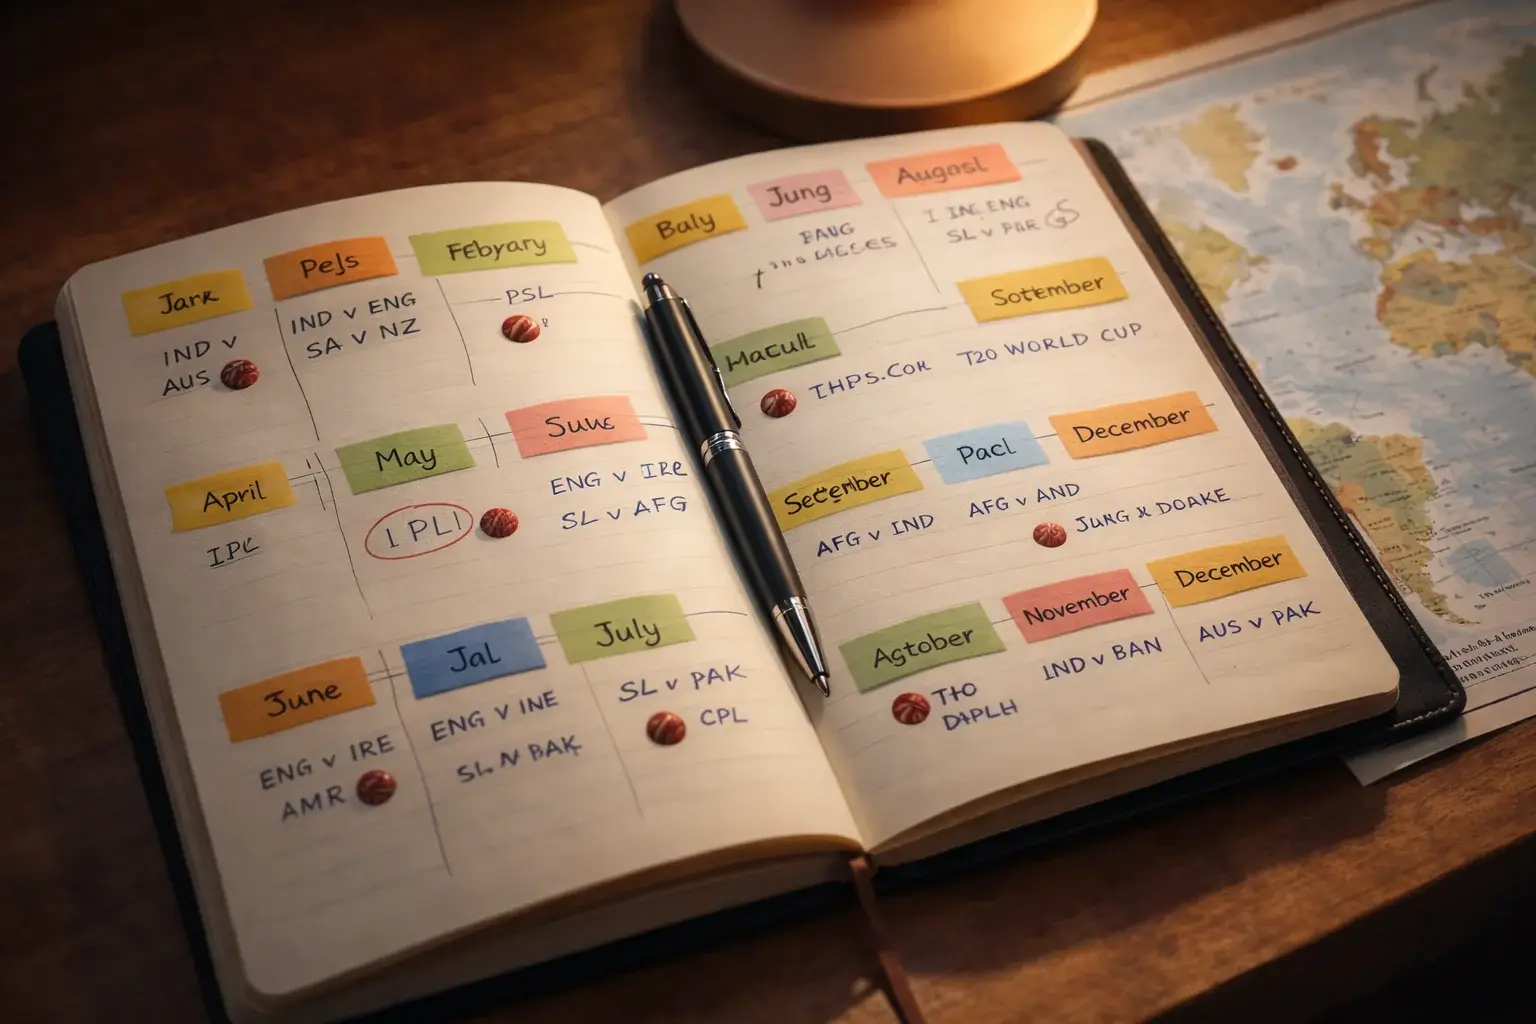 Jark
Pejs
FEbyrary
IND v
AUS
IND v ENG
SA v NZ
PSL
April
May
Suus
IPL
I PL I
ENG v IRE
SL v AFG
June
Jal
July
ENG v IRE
AMR
ENG v INE
SL N BAK
SL v PAK
CPL
Baly
Jung
Augasl
I IN: ENG
SL v PAR
Sotember
Macull
IHPS.COR
T20 WORLD CUP
Setember
Pacl
December
AFG v IND
AFG v AND
JUNG & DOAKE
Agtober
November
December
THO
DAPLH
IND v BAN
AUS v PAK